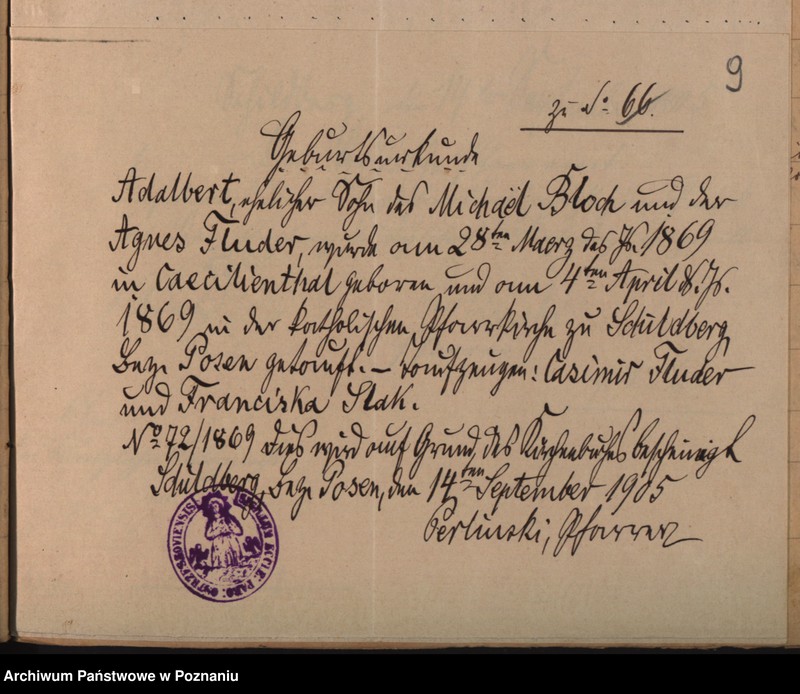 9
zu No 66.
Geburtsurkunde
Adalbert, ehelicher Sohn des Michaël Bloch und der
Agnes Fluder, wurde am 28ten Maerz des Js. 1869
in Caecilienthal geboren und am 4ten April d. Js.
1869 in der katholischen Pfarrkirche zu Schildberg,
Bez. Posen getauft. — Taufzeugen: Casimir Fluder
und Franciska Slak.
No 72/1869 Dies wird auf Grund des Kirchenbuches bescheinigt
Schildberg, Bez. Posen, den 14ten September 1905
Perlinski, Pfarrer
SIGILLUM ECCLE: PARO: OSTRZESZOVIENSIS
Archiwum Państwowe w Poznaniu